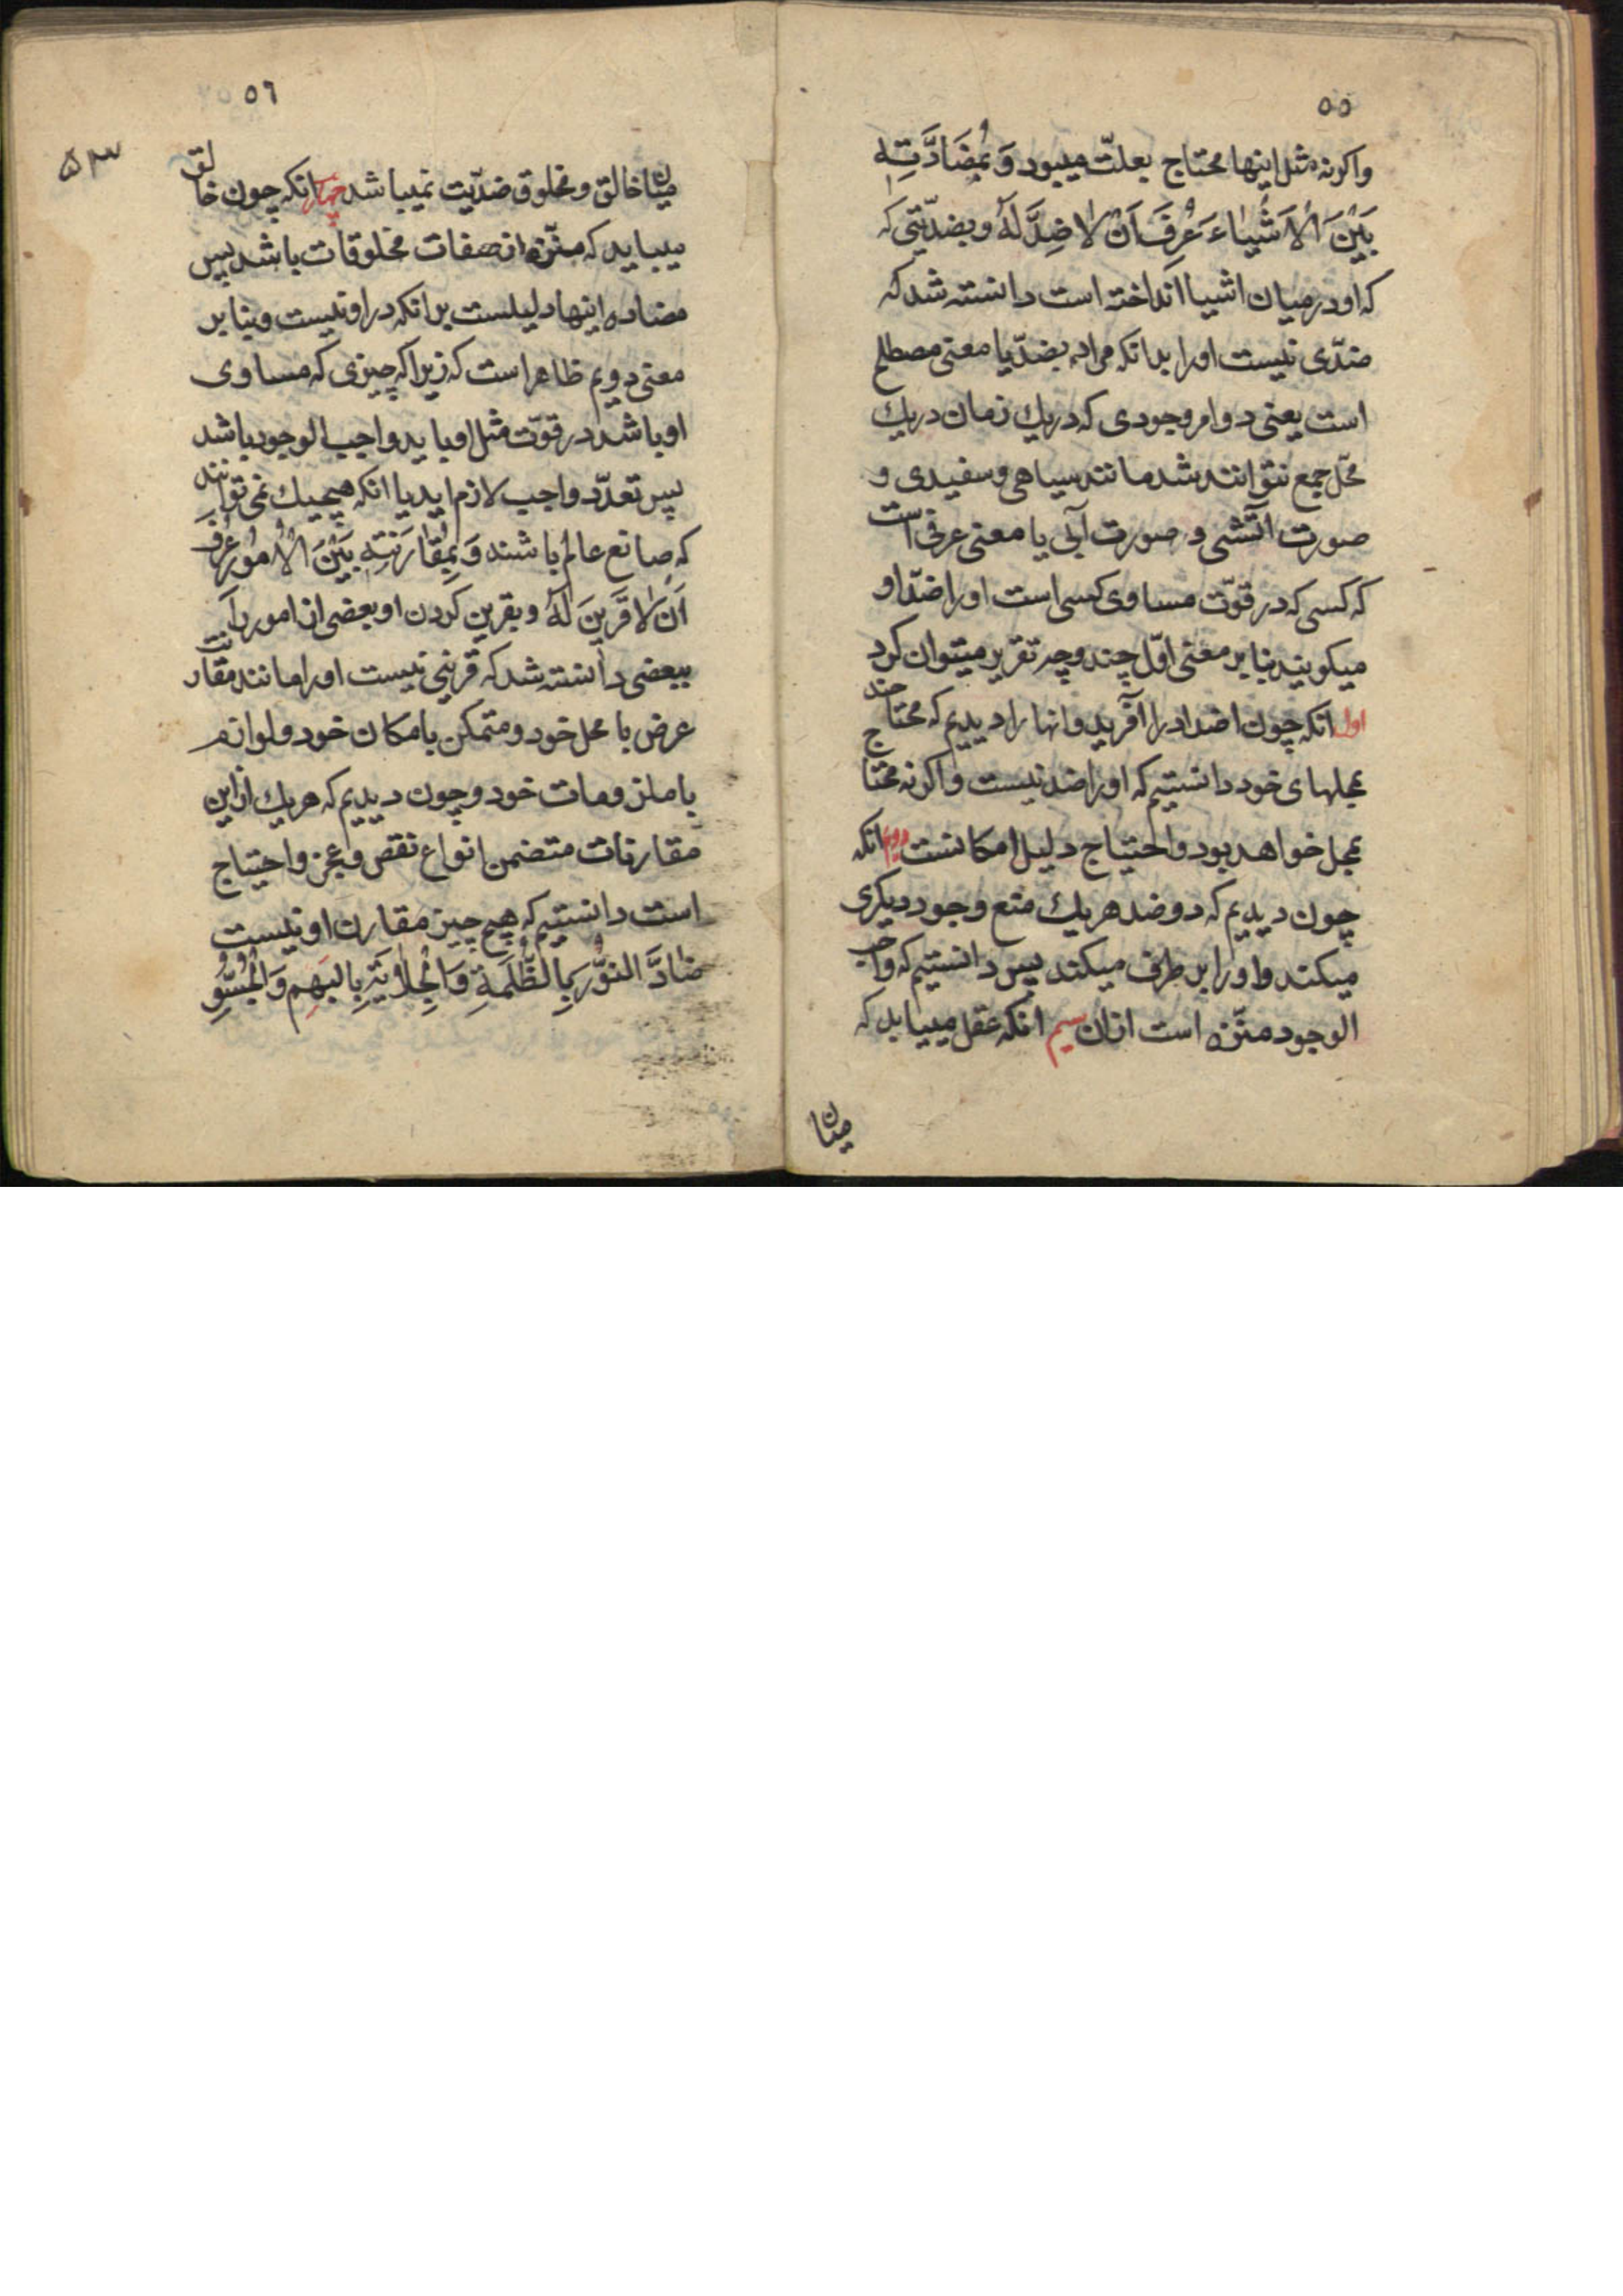 ٥٥
واکرنه مثل اینها محتاج بعلّت میبود وَ بِمُضَادَّتِهِ
بَیْنَ الْاَشْیَاءَ عُرِفَ اَنْ لَا ضِدَّ لَهُ و بضدّیّتی که
که او در میان اشیا انداخته است دانسته شد که
ضدّی نیست او را بدانکه مراد بضدّ یا معنی مصطلح
است یعنی دو امر وجودی که در یك زمان در یك
محّل جمع نتوانند شد مانند سیاهی و سفیدی و
صورت آتشی و صورت آبی یا معنی عرفی است
که کسی که در قوّت مساوی کسی است او را ضدّ او
میکویند بنابر معنی اوّل چند وجه تقریر میتوان کرد
اول انکه چون اضداد را آفرید و انها را دیدیم که محتاج
بمحلهای خود دانستیم که او را ضد نیست و اکرنه محتاج
بمحل خواهد بود و احتیاج دلیل امکانست دویم انکه
چون دیدیم که دو ضد هر یك منع وجود دیکری
میکند و او را بر طرف میکند پس دانستیم که واجب
الوجود منزّه است ازان سیم انکه عقل مییابد که
میان
٥٦
۵۳
میان خالق و مخلوق ضدّیت نمیباشد چهارم انکه چون خالق
میباید که منزّه از صفات مخلوقات باشد پس
مضاده اینها دلیلست بر انکه در او نیست و بنابر
معنی دویم ظاهر است که زیرا که چیزی که مساوی
او باشد در قوّت مثل او باید واجب الوجود باشد
پس تعدّد واجب لازم اید یا انکه هیچیك نمی توانند
که صانع عالم باشند وَ بِمُقَارَنَتِهِ بَیْنَ الْاُمُوْرِ عُرِفَ
اَنْ لَا قَرِیْنَ لَهُ و بقرین کردن او بعضی از امور را
ببعضی دانسته شد که قرینی نیست او را مانند مقارنت
عرض با محل خود و متمکن با مکان خود و لوازم
با ملزومات خود و چون دیدیم که هر یك از این
مقارنات متضمن انواع نقص و عجز و احتیاج
است دانستیم که هیچ چیز مقارن او نیست
ضَادَّ النُّوْرَ بِالظُّلْمَةِ وَالْجِلَایَةَ بِالْبَهَمِ وَالْجُسُوِّ